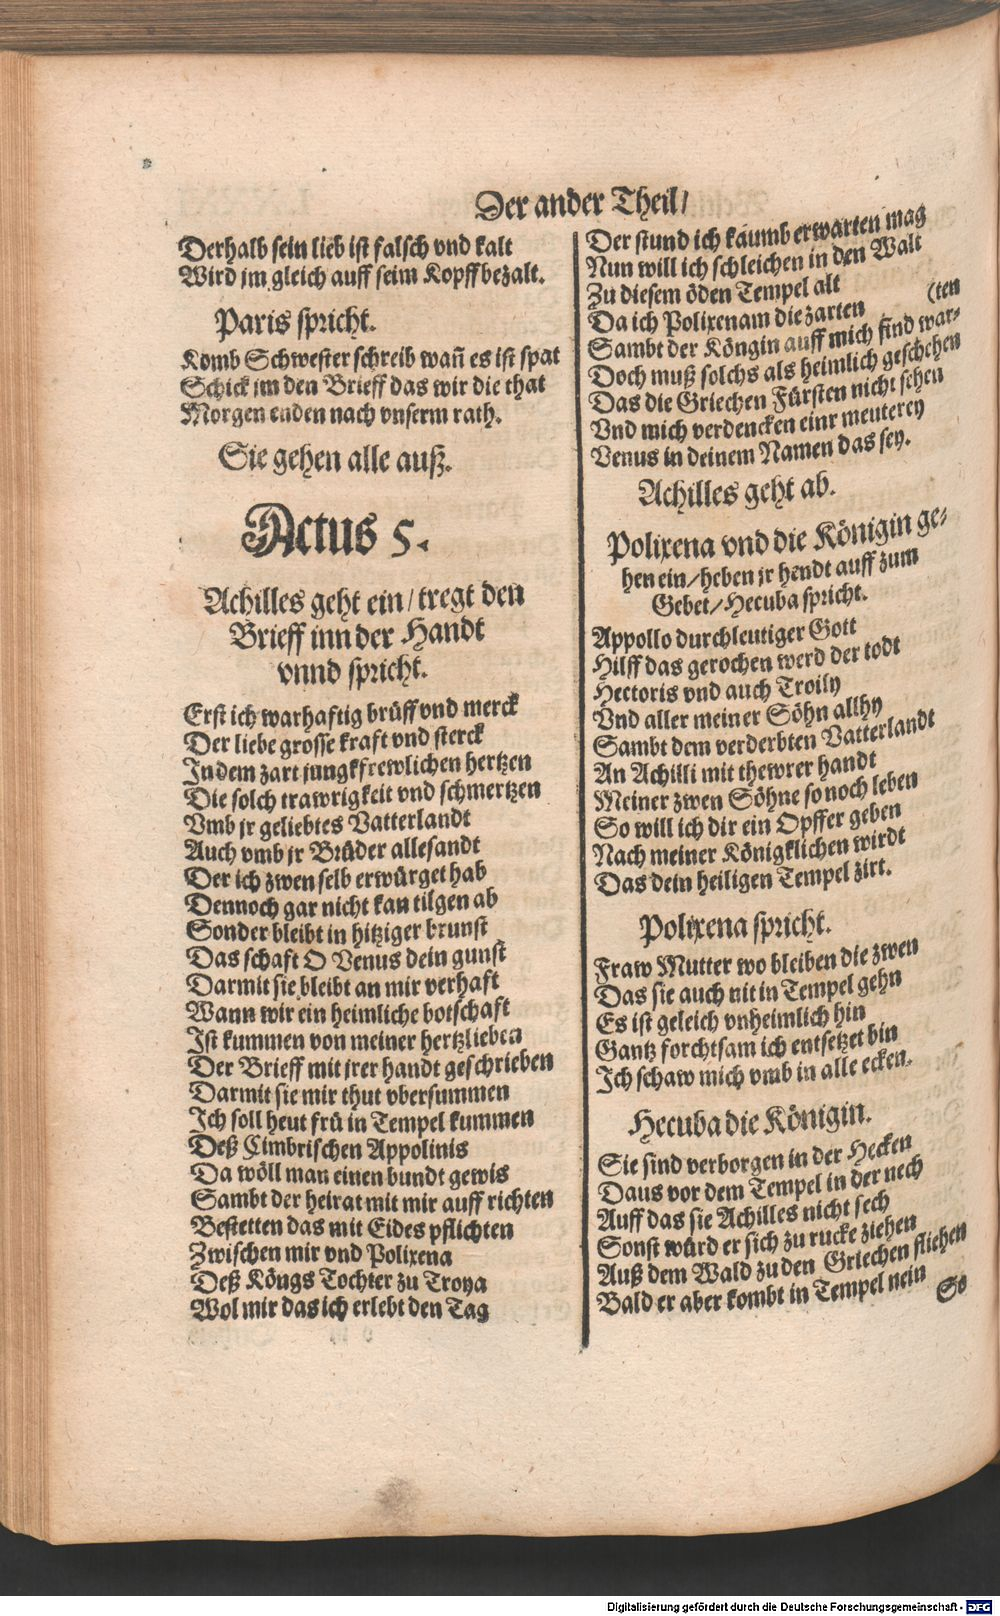 Der ander Theil/
Derhalb sein lieb ist falsch vnd kalt
Wird jm gleich auff seim Kopff bezalt.
Paris spricht.
Komb Schwester schreib wañ es ist spat
Schick jm den Brieff das wir die that
Morgen enden nach vnserm rath.
Sie gehen alle auß.
Actus 5.
Achilles geht ein/ tregt den
Brieff inn der Handt
vnnd spricht.
Erst ich warhaftig brüff vnd merck
Der liebe grosse kraft vnd sterck
In dem zart jungkfrewlichen hertzen
Die solch trawrigkeit vnd schmertzen
Vmb jr geliebtes Vatterlandt
Auch vmb jr Brüder allesandt
Der ich zwen selb erwürget hab
Dennoch gar nicht kan tilgen ab
Sonder bleibt in hitziger brunst
Das schaft O Venus dein gunst
Darmit sie bleibt an mir verhaft
Wann wir ein heimliche botschaft
Ist kummen von meiner hertzlieben
Der Brieff mit jrer handt geschrieben
Darmit sie mir thut vbersummen
Ich soll heut frü in Tempel kummen
Deß Cimbrischen Appolinis
Da wöll man einen bundt gewis
Sambt der heirat mit mir auff richten
Bestetten das mit Eides pflichten
Zwischen mir vnd Polixena
Deß Köngs Tochter zu Troya
Wol mir das ich erlebt den Tag
Der stund ich kaumb erwarten mag
Nun will ich schleichen in den Walt
Zu diesem öden Tempel alt
Da ich Polixenam die zarten (ten
Sambt der Köngin auff mich find war-
Doch muß solchs als heimlich geschehen
Das die Griechen Fürsten nicht sehen
Vnd mich verdencken einr meuterey
Venus in deinem Namen das sey.
Achilles geht ab.
Polixena vnd die Königin ge-
hen ein/ heben jr hendt auff zum
Gebet/ Hecuba spricht.
Appollo durchleutiger Gott
Hilff das gerochen werd der todt
Hectoris vnd auch Troily
Vnd aller meiner Söhn allhy
Sambt dem verderbten Vatterlandt
An Achilli mit thewrer handt
Meiner zwen Söhne so noch leben
So will ich dir ein Opffer geben
Nach meiner Königklichen wirdt
Das dein heiligen Tempel zirt.
Polixena spricht.
Fraw Mutter wo bleiben die zwen
Das sie auch nit in Tempel gehn
Es ist geleich vnheimlich hin
Gantz forchtsam ich entsetzet bin
Ich schaw mich vmb in alle ecken.
Hecuba die Königin.
Sie sind verborgen in der Hecken
Daus vor dem Tempel in der nech
Auff das sie Achilles nicht sech
Sonst würd er sich zu rucke ziehen
Auß dem Wald zu den Griechen fliehen
Bald er aber kombt in Tempel nein
So
Digitalisierung gefördert durch die Deutsche Forschungsgemeinschaft - DFG